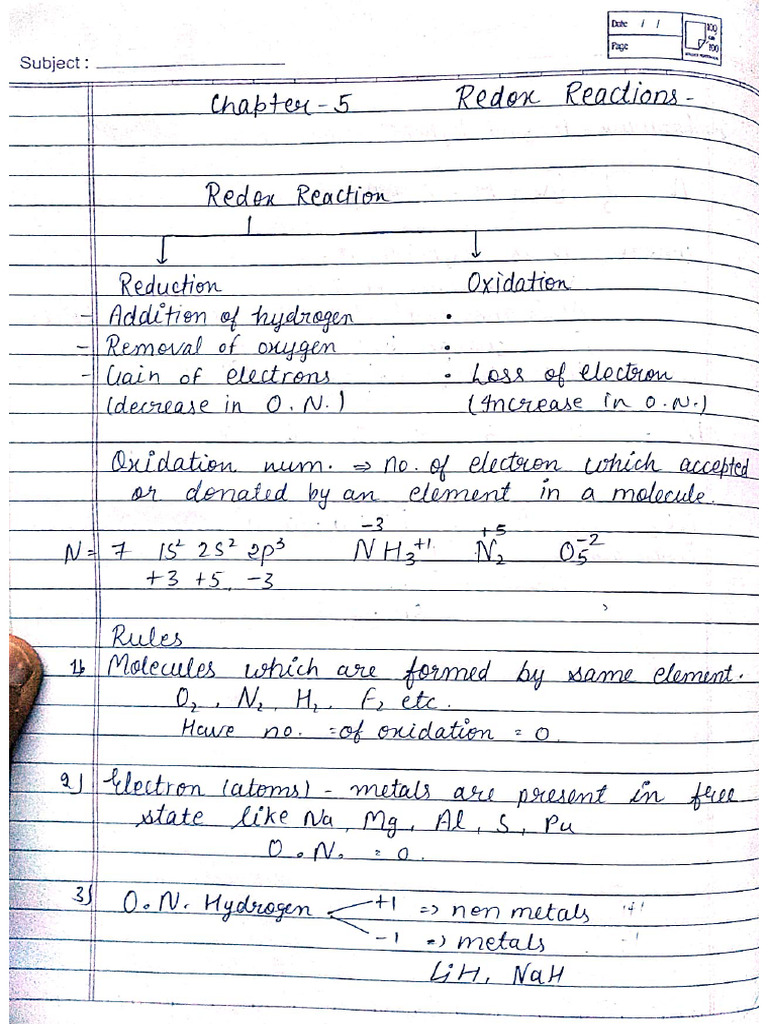 Date / /
Page
Subject :
Chapter-5 Redox Reactions-
Redox Reaction
Reduction Oxidation
- Addition of hydrogen •
- Removal of oxygen •
- Gain of electrons • Loss of electron
(decrease in O.N.) (Increase in O.N.)
Oxidation num. ⇒ no. of electron which accepted
or donated by an element in a molecule.
N = 7 1S² 2S² 2p³ N⁻³H₃⁺¹ N₂⁺⁵ O₅⁻²
+3 +5, -3
Rules
1) Molecules which are formed by same element.
O₂, N₂, H₂, F₂ etc.
Have no. =of oxidation = 0
2) Electron (atoms) - metals are present in free
state like Na, Mg, Al, S, Pu
O.N. = 0.
3) O.N. Hydrogen +1 ⇒ non metals +1
-1 ⇒ metals -1
LiH, NaH